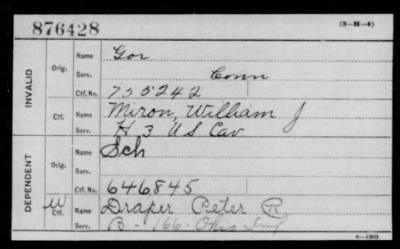 876428 (3-H-4)
INVALID
Orig. Name Gor
Serv. Conn
Ctf. No. 755242
Ctf. Name Miron, William J
Serv. H 3 US Cav
DEPENDENT
Orig. Name Sch
Serv.
Ctf. No. 646845
W Ctf. Name Draper Peter R
Serv. B - 166 - Ohio Inf